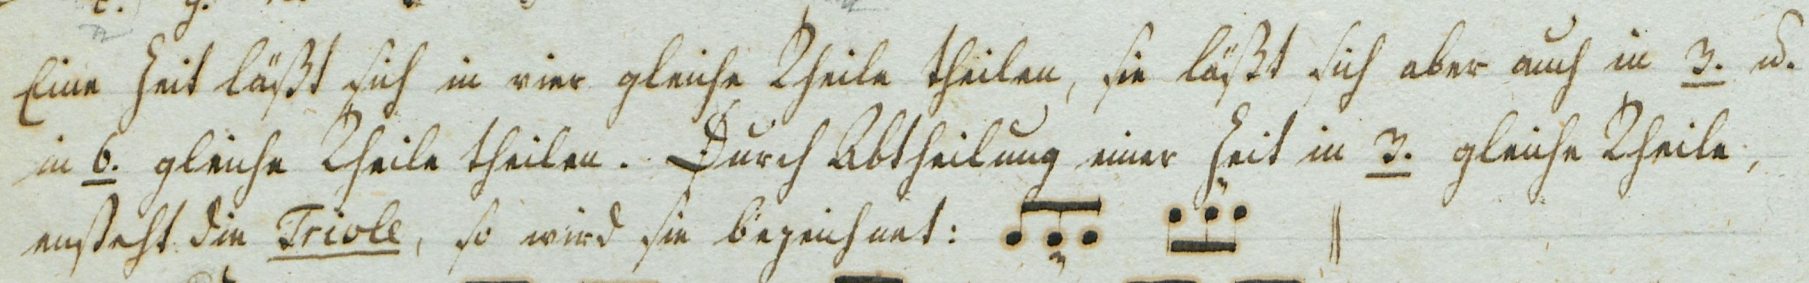 Eine Zeit läßt sich in vier gleiche Theile theilen, sie läßt sich aber auch in 3. u.
in 6. gleiche Theile theilen. Durch Abtheilung einer Zeit in 3. gleiche Theile,
ensteht die Triole, so wird sie bezeichnet: 3 3